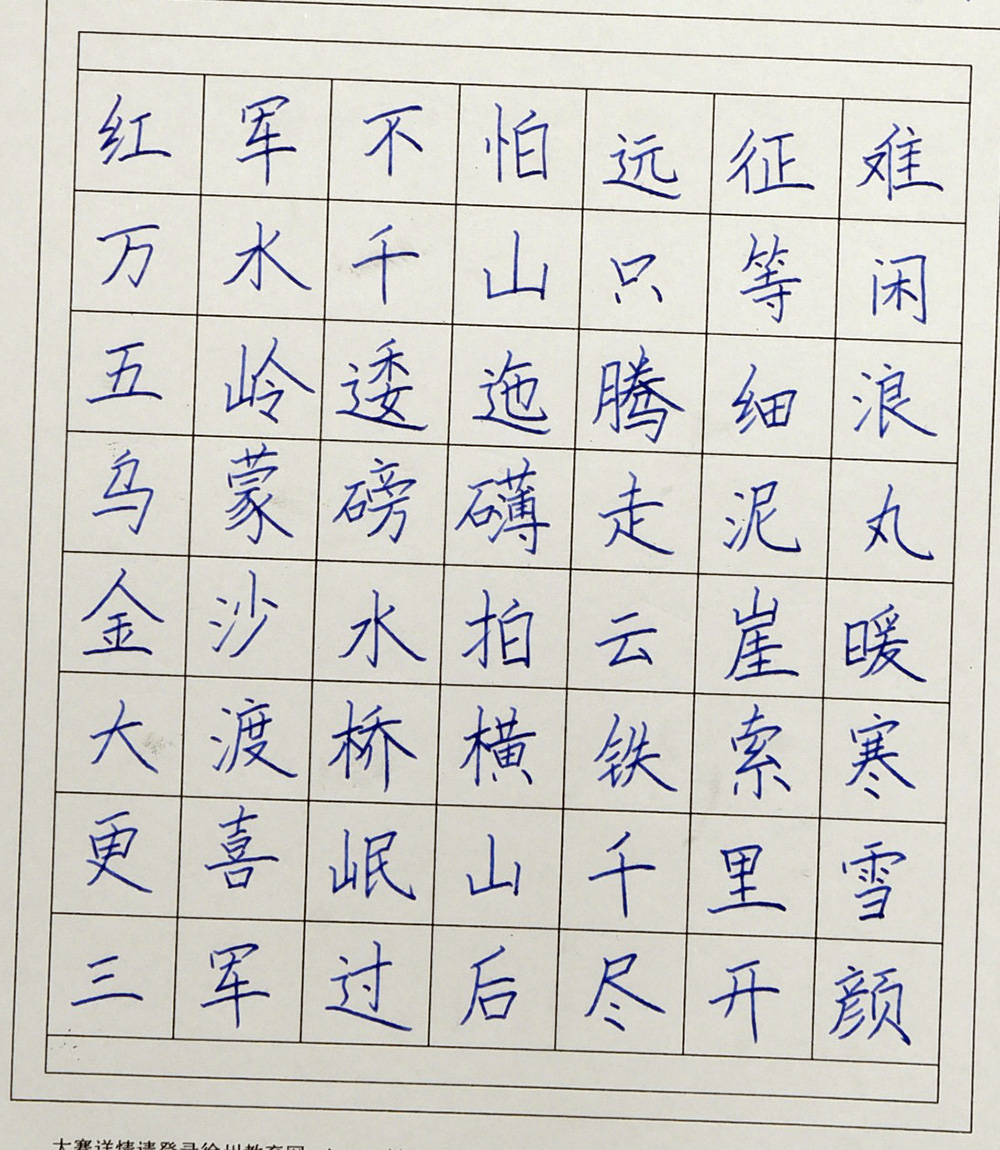 红军不怕远征难
万水千山只等闲
五岭逶迤腾细浪
乌蒙磅礴走泥丸
金沙水拍云崖暖
大渡桥横铁索寒
更喜岷山千里雪
三军过后尽开颜
大赛详情请登录徐州教育网